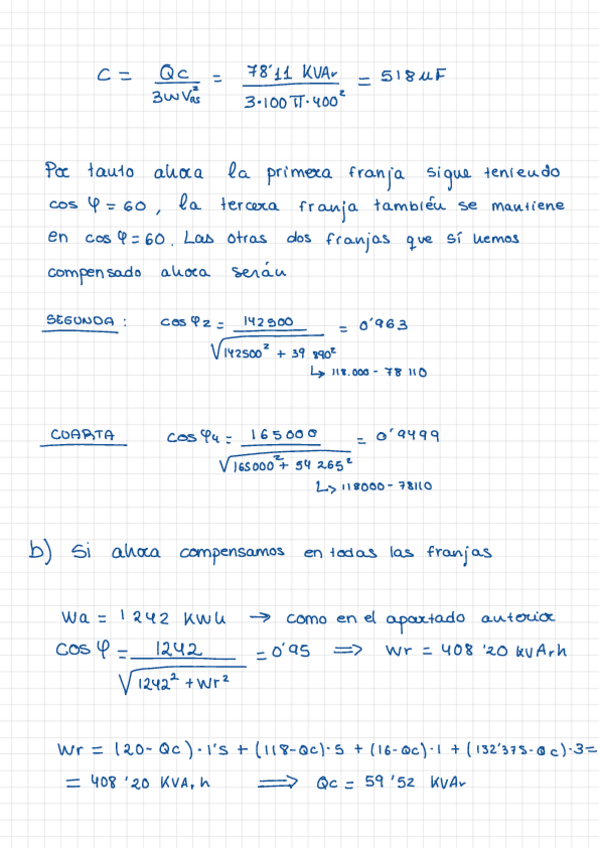 C = Qc / 3ωVas² = 78'11 KVAr / 3·100π·400² = 518 μF
Por tanto ahora la primera franja sigue teniendo
cos φ = 60, la tercera franja también se mantiene
en cos φ = 60. Las otras dos franjas que sí hemos
compensado ahora serán
SEGUNDA: cos φ2 = 142500 / √142500² + 39 890² = 0'963
↳ 118.000 - 78 110
CUARTA cos φ4 = 165000 / √165000² + 54 265² = 0'9499
↳ 118000 - 78110
b) Si ahora compensamos en todas las franjas
Wa = 1242 KWh → como en el apartado anterior
cos φ = 1242 / √1242² + Wr² = 0'95 ⇒ Wr = 408'20 kVArh
Wr = (20-Qc)·1'5 + (118-Qc)·5 + (16-Qc)·1 + (132'375-Qc)·3=
= 408'20 KVArh ⇒ Qc = 59'52 KVAr